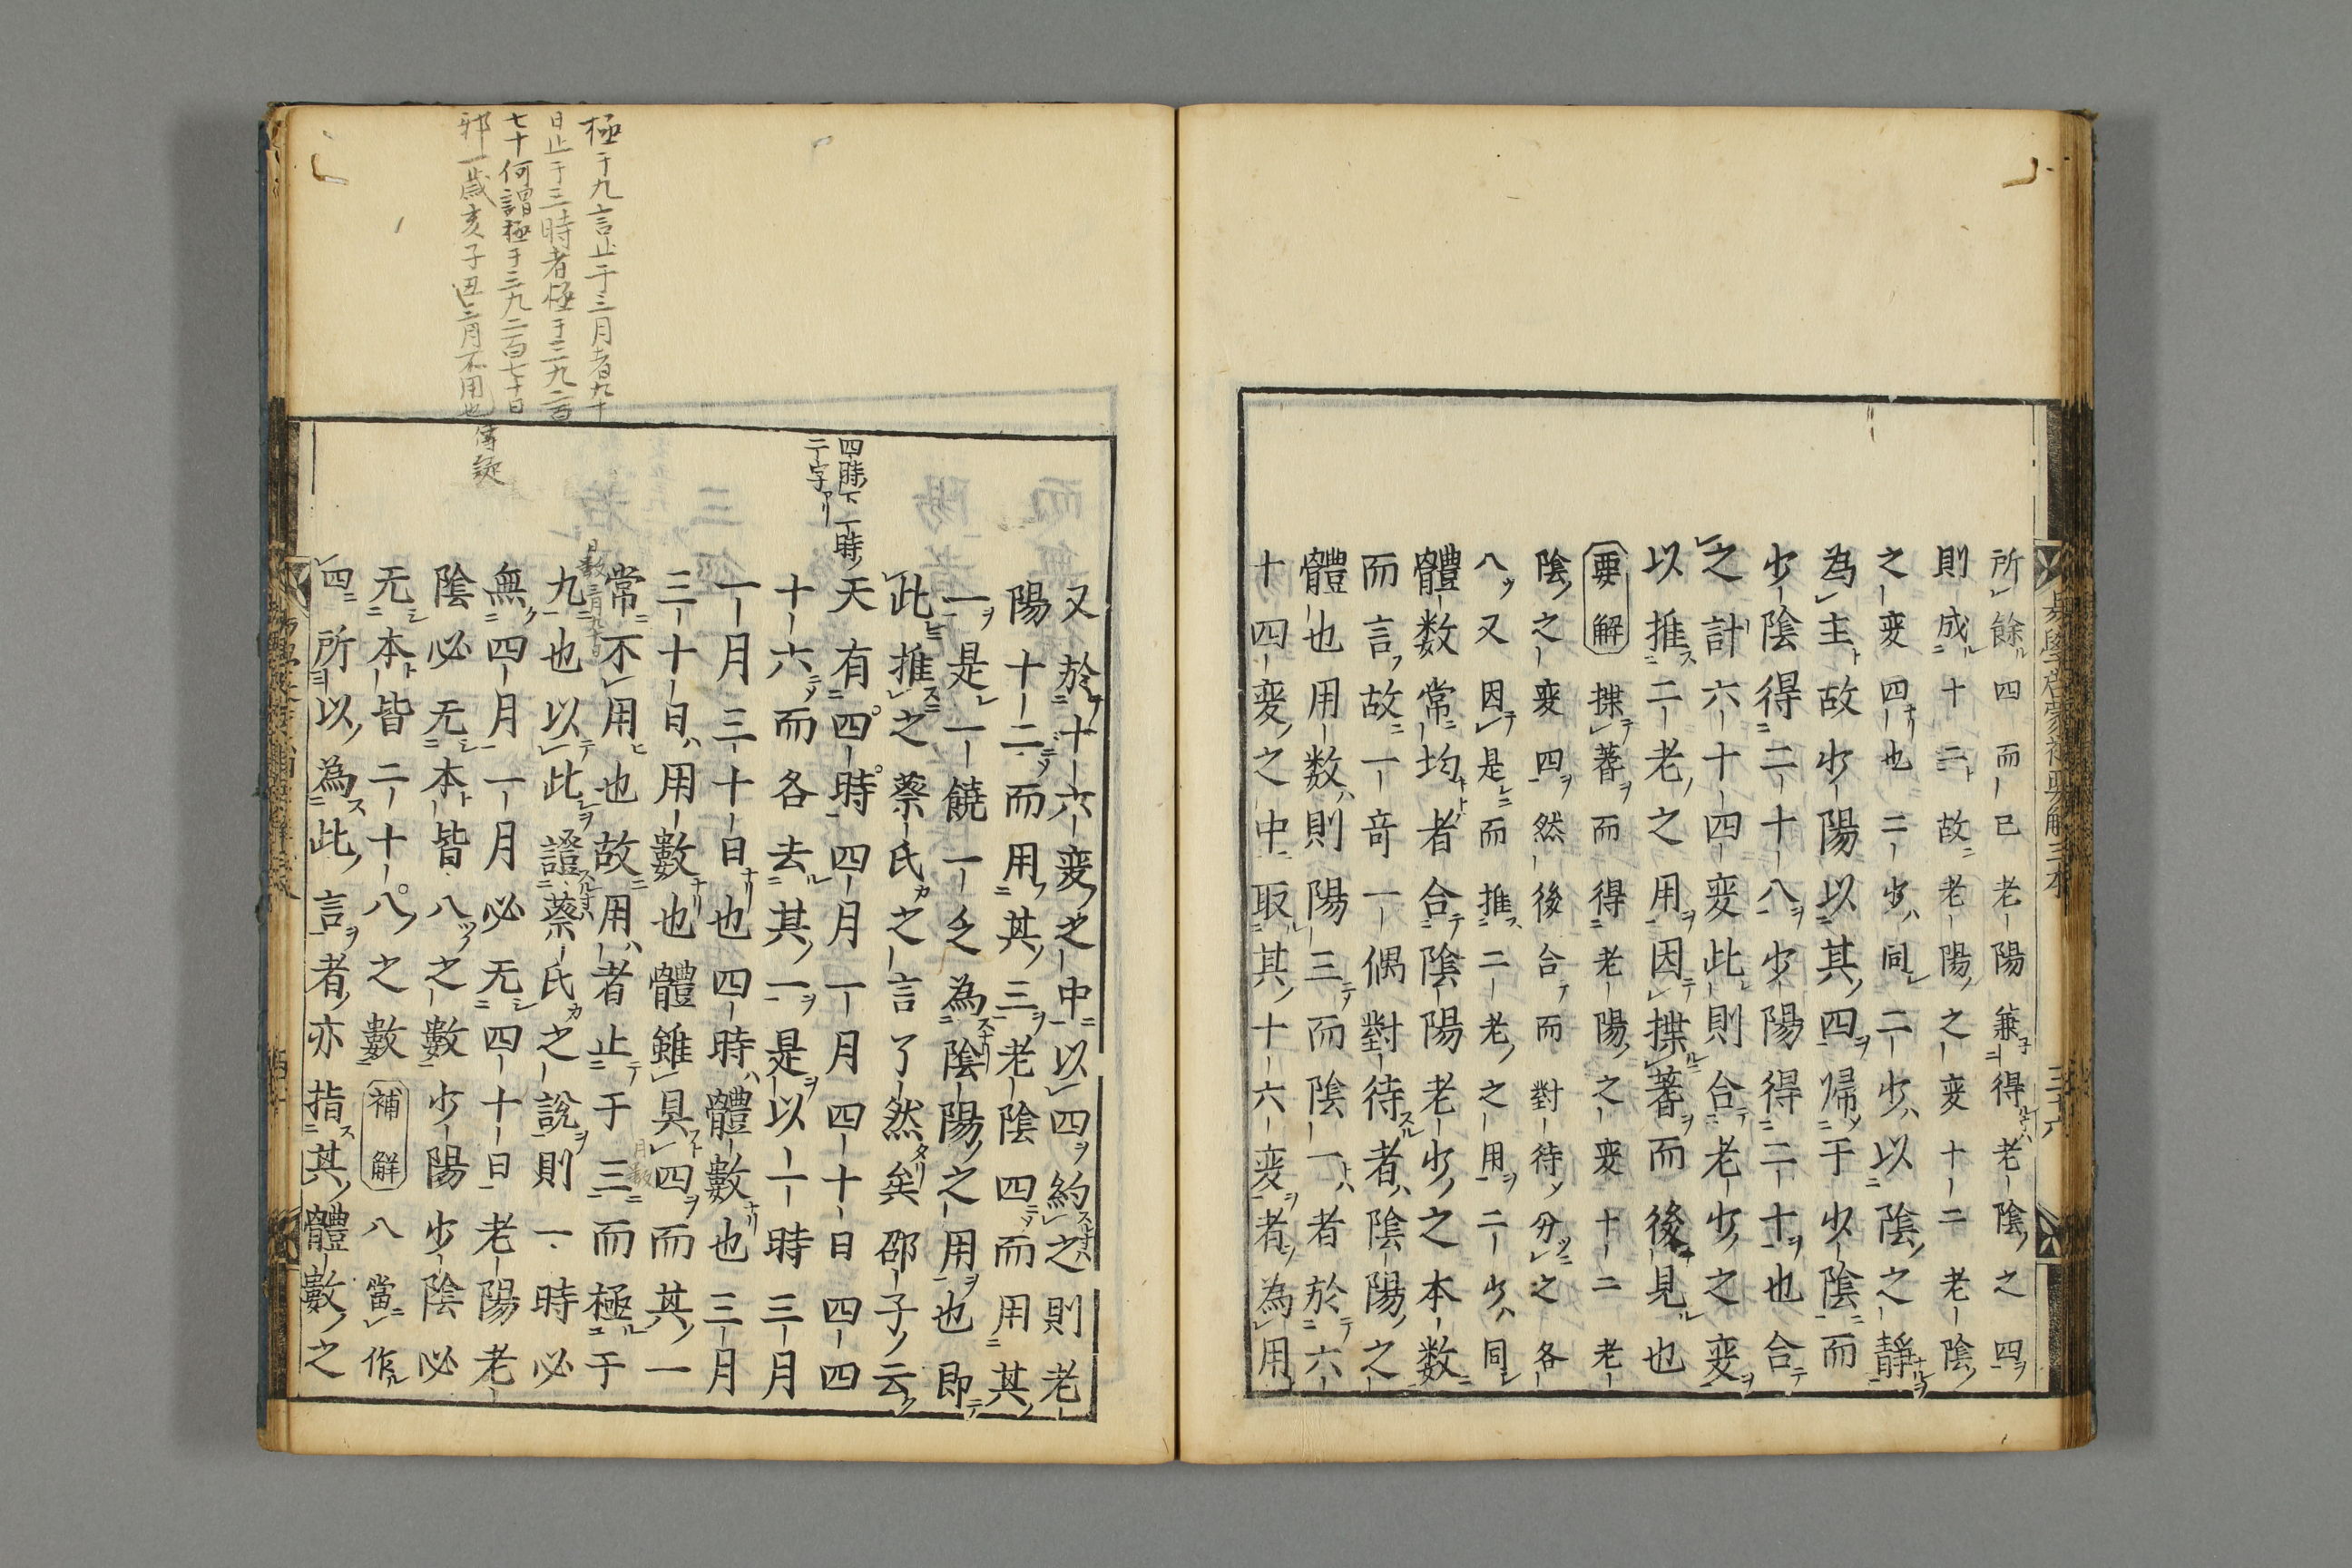 所餘四而已老陽兼得老陰之四
則成十二故老陽之変十二老陰
之変四也二少同二少以陰之靜
為主故少陽以其四帰于少陰而
少陰得二十八少陽得二十也合
之計六十四変此則合老少之変
以推二老之用因揲蓍而後見也
要解 揲蓍而得老陽之変十二老
陰之変四然後合而對待分之各
八又因是而推二老之用二少同
體数常均者合陰陽老少之本数
而言故一竒一偶對待者陰陽之
體也用数則陽三而陰一者於六
十四変之中取其十六変者為用
又於十六変之中以四約之則老
陽十二而用其三老陰四而用其
一是一饒一乏為陰陽之用也即
此推之蔡氏之言了然矣邵子云
天有四時四月一月四十日四四
十六而各去其一是以一時三月
一月三十日也四時體數也三月
三十日用數也體雖具四而其一
常不用也故用者止于三而極于
九也以此證蔡氏之說則一時必
無四月一月必无四十日老陽老
陰必无本皆八之數少陽少陰必
无本皆二十八之數 補解 八當作
四所以為此言者亦指其體數之
四時下一時
二字アリ
極于九言止于三月者九十
日止于三時者極于三九二百
七十何謂極于三九二百七十日
邪一歳亥子丑三月不用也
月数
三十六